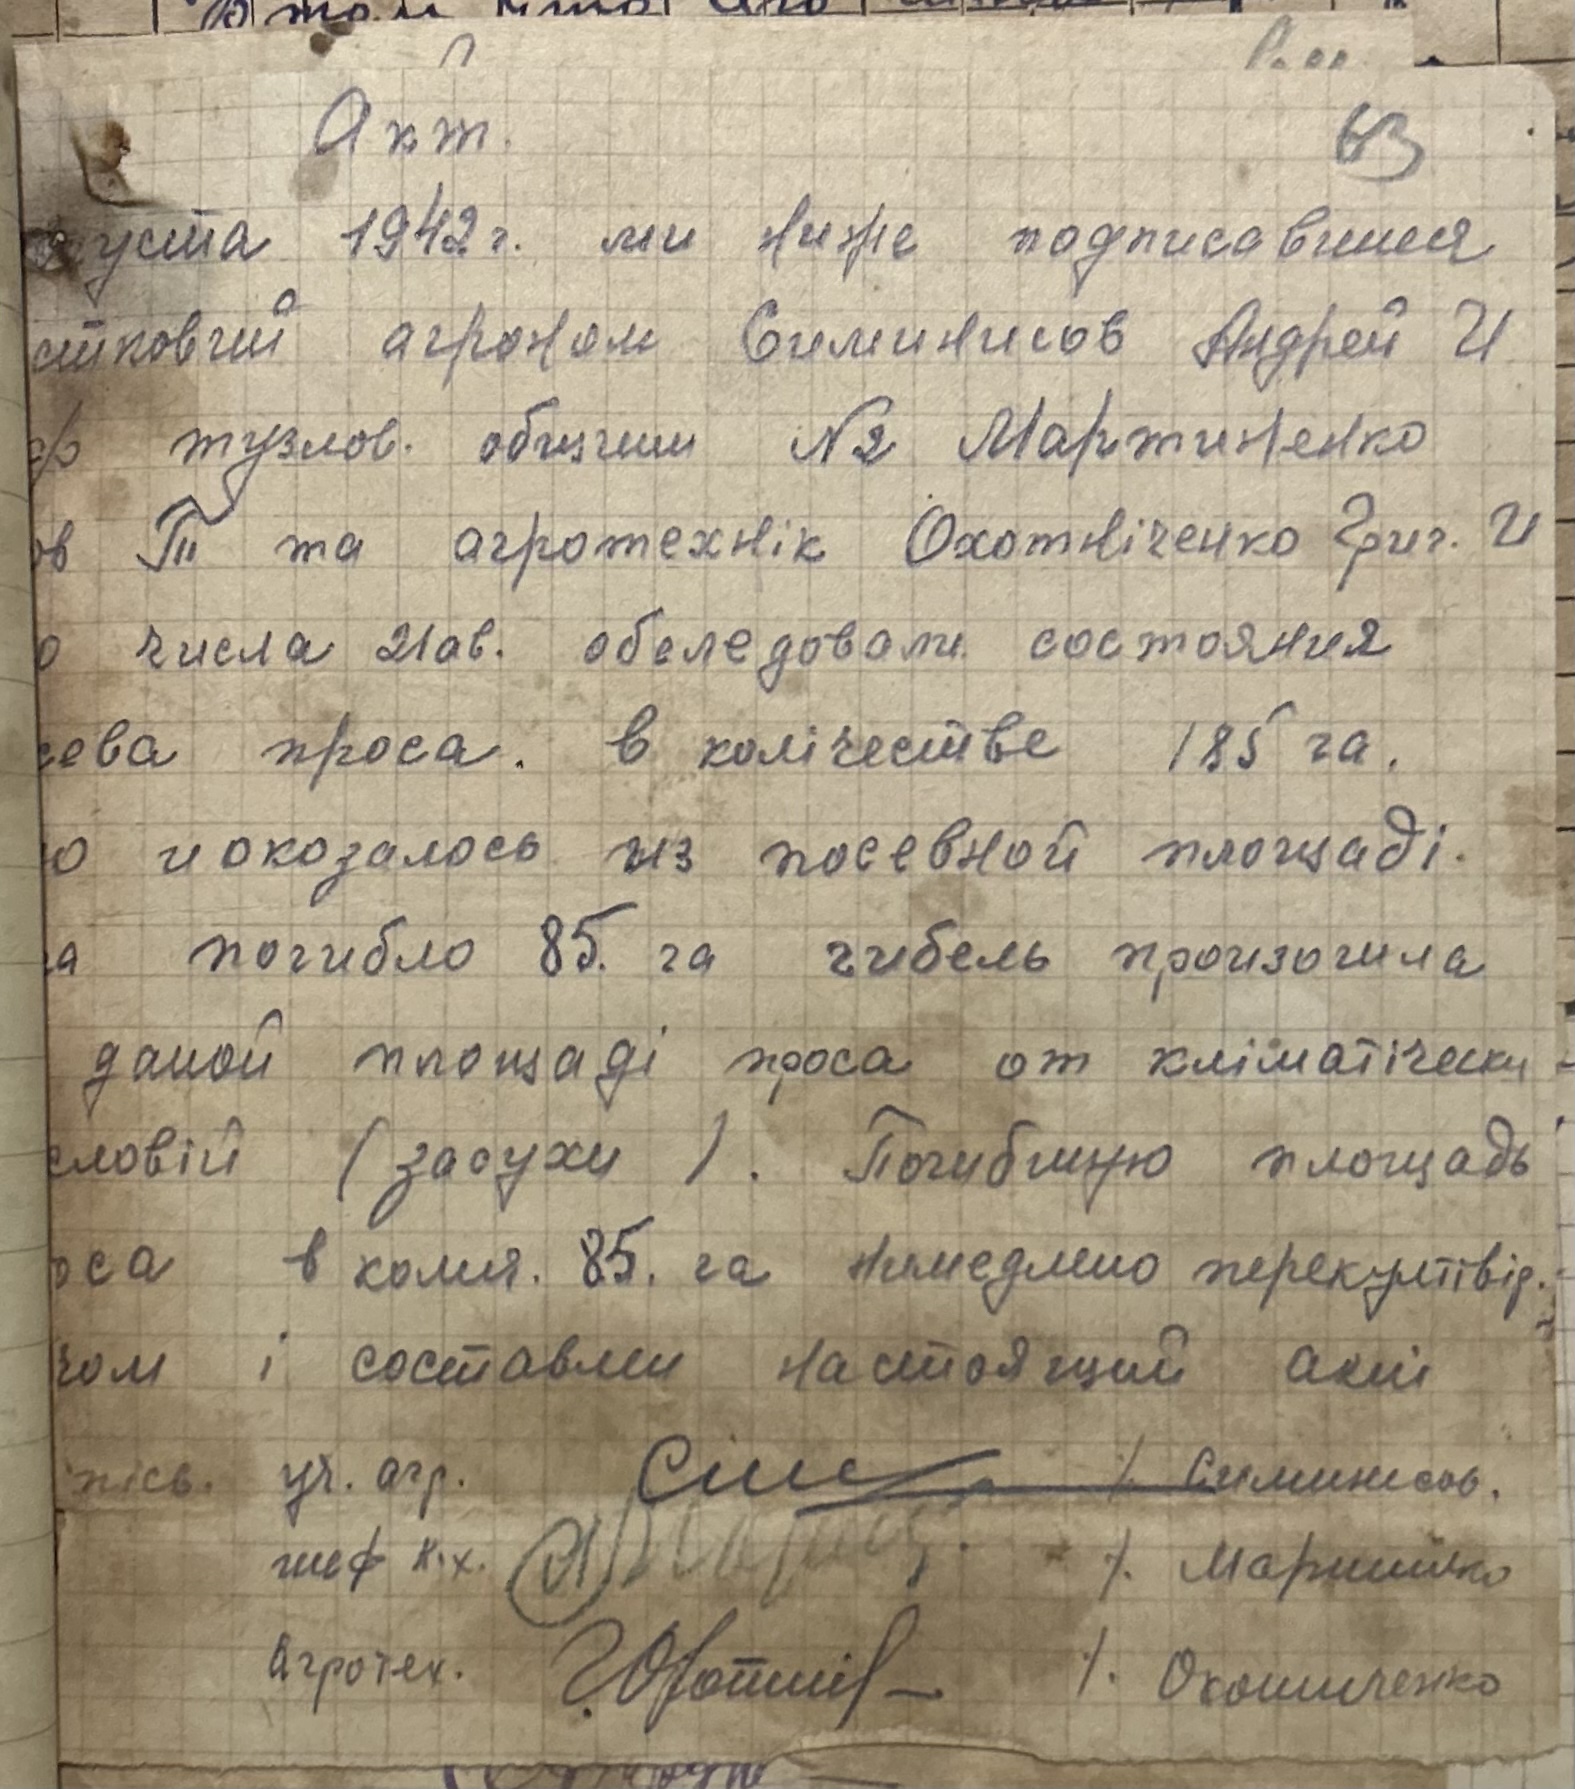 Акт.
63
уста 1942 г. ми ниже подписавшися
стковий агроном Симинисов Андрей И
еф тузлов. общины N2 Мартиненко
ов П та агротехнік Охотніченко Григ. И
о числа 21 ав. обследовали состояния
сева проса. в колічестве 185 га.
о и оказалось из посевной площаді.
га погибло 85. га гибель произошла
даной площаді проса от кліматічески
словій (засухи). Погибшую площадь
оса в колич. 85. га немедлено перекултівір.
чом і составили настоящий акт
пісь. уч. агр. Сим /. Симинисов.
шеф к.х. /. Мартиненко
Агротех. Г. Охотніч /. Охотниченко